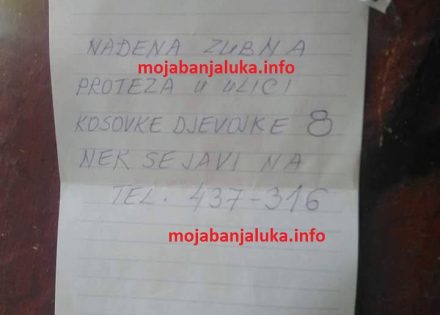 NAĐENA ZUBNA
mojabanjaluka.info
PROTEZA U ULICI
KOSOVKE DJEVOJKE 8
NEK SE JAVI NA
TEL. 437-316
mojabanjaluka.info